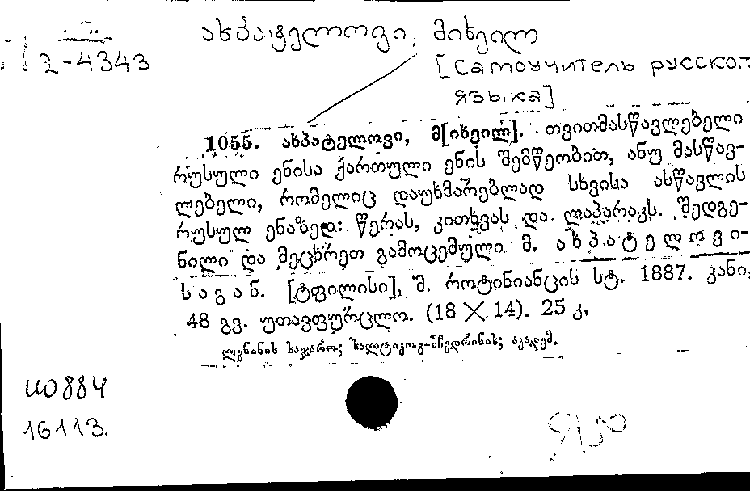 ახპატელოვი, მიხეილ
2-4343
[Самоучитель русского
языка]
1055. ახპატელოვი, მ[იხეილ]. თვითმასწავლებელი
რუსული ენისა ქართული ენის შემწეობით, ანუ მასწავ-
ლებელი, რომელიც დაუხმარებლად სხვისა ასწავლის
რუსულ ენაზედ: წერას, კითხვას და ლაპარაკს. შედგე-
ნილი და მეცხრეთ გამოცემული მ. ახპატელოვი-
საგან. [ტფილისი], შ. როტინიანცის სტ. 1887. კანი,
48 გვ. უთავფურცლო. (18 X 14). 25 კ.
ლენინის საჯარო; სალტიკოვ-შჩედრინის; აკადემ.
16113.